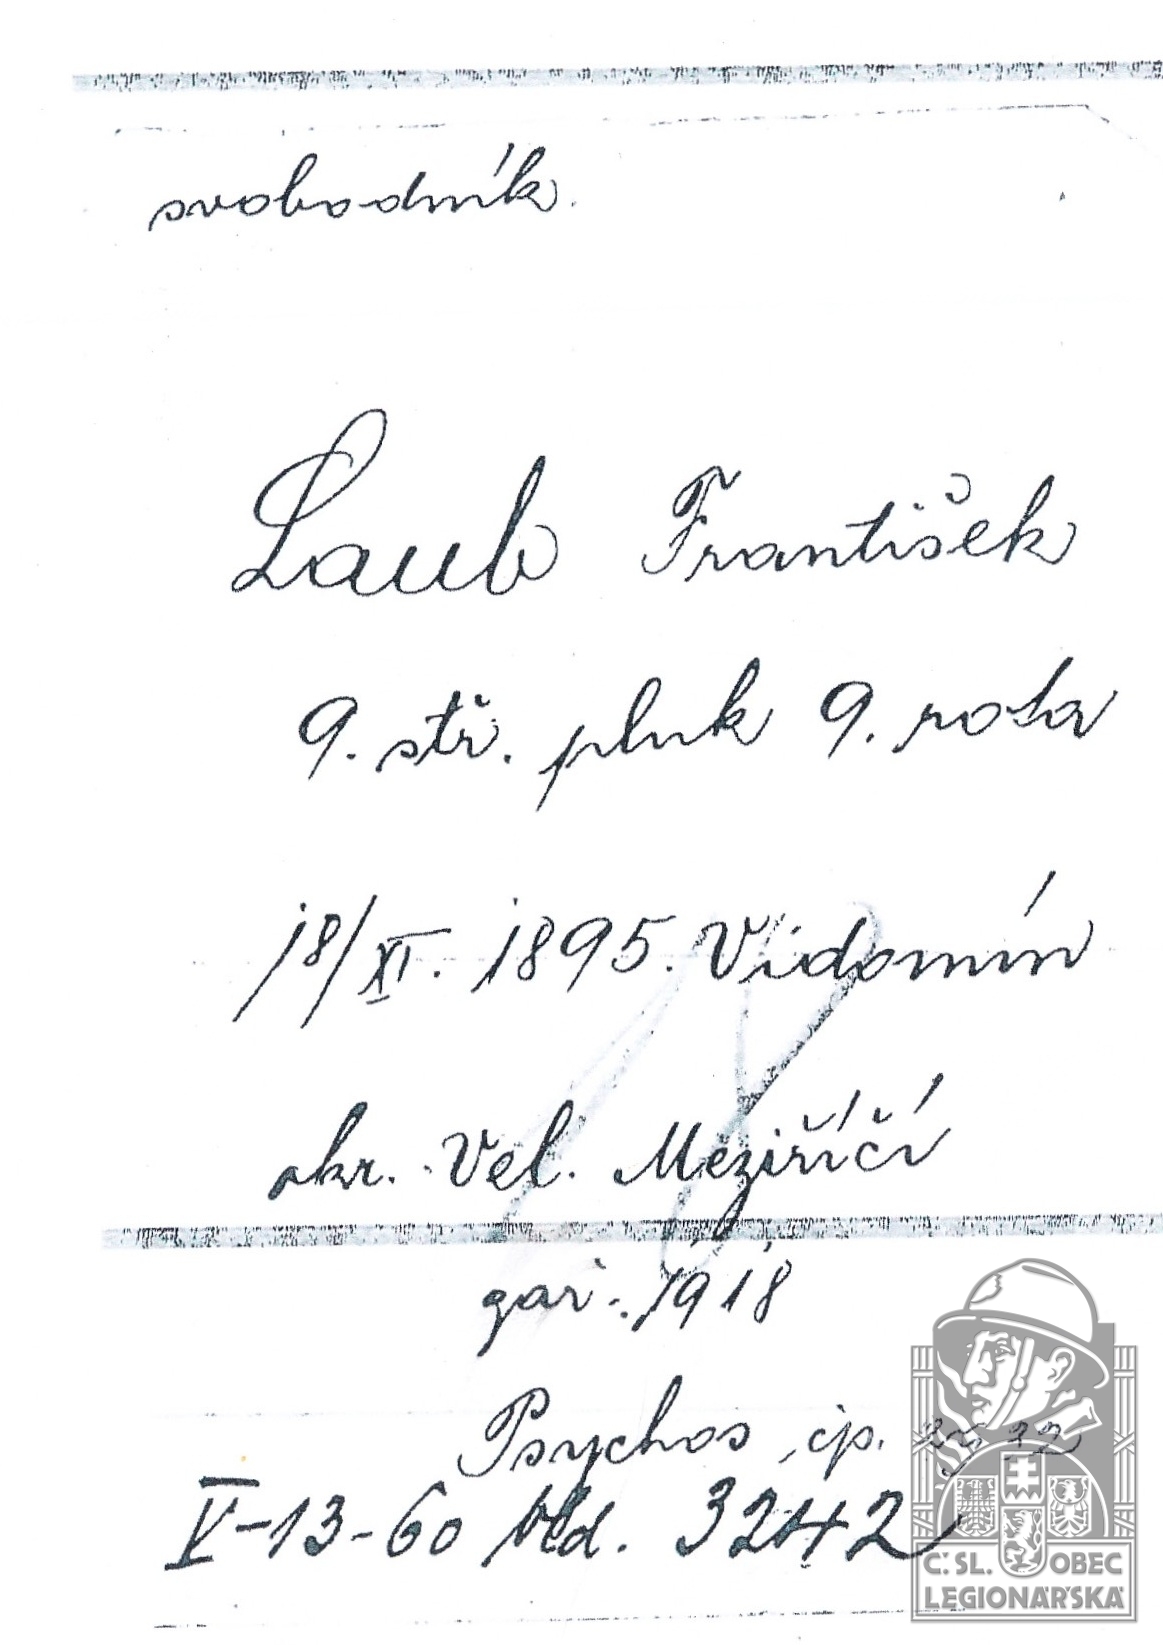 svobodník.
Laub František
9. stř. pluk 9. rota
18/XI. 1895. Vidomín
okr. Vel. Meziříčí
gar. 1918
Psychos čp.
V-13-60 Vld. 3242
Č. SL. OBEC
LEGIONÁŘSKÁ